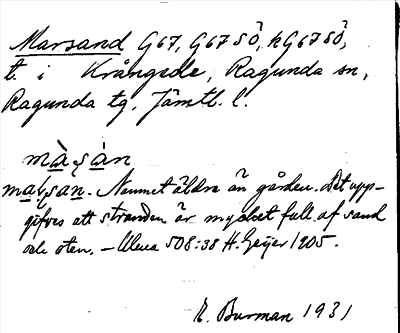 Marsand G67, G67SÖ, hG67SÖ,
t. i Krångede, Ragunda sn,
Ragunda tg, Jämtl. l.
màşàn
maşşan. Namnet äldre än gården. Det upp-
gifves att stranden är mycket full af sand
och sten. – 508:38 H. Geijer 1905.
E. Burman 1931